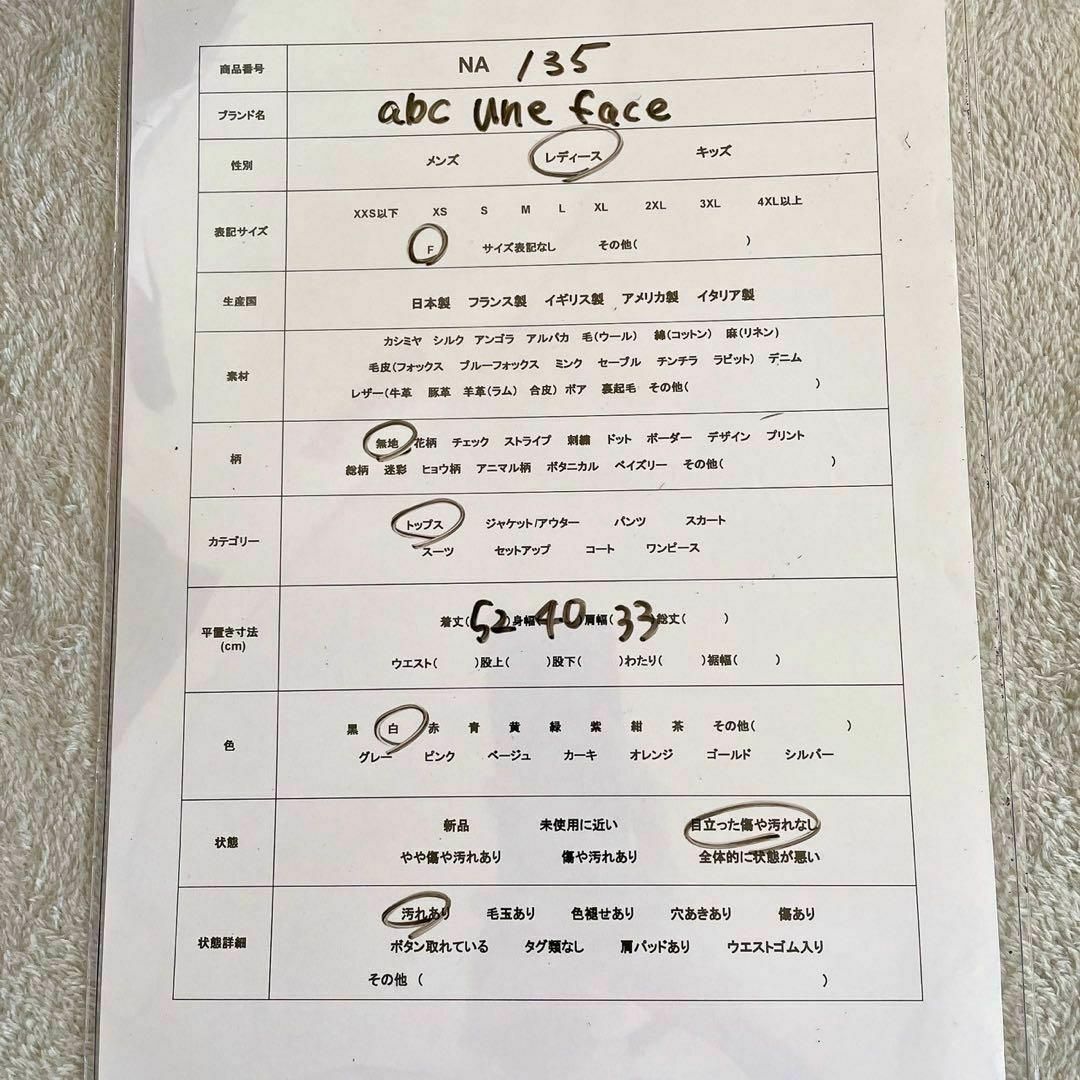 商品番号 NA 135
ブランド名 abc une face
性別 メンズ レディース キッズ
XXS以下 XS S M L XL 2XL 3XL 4XL以上
表記サイズ
F サイズ表記なし その他( )
生産国 日本製 フランス製 イギリス製 アメリカ製 イタリア製
カシミヤ シルク アンゴラ アルパカ 毛(ウール) 綿(コットン) 麻(リネン)
素材 毛皮(フォックス ブルーフォックス ミンク セーブル チンチラ ラビット) デニム
レザー(牛革 豚革 羊革(ラム) 合皮) ボア 裏起毛 その他( )
無地 花柄 チェック ストライプ 刺繍 ドット ボーダー デザイン プリント
柄
総柄 迷彩 ヒョウ柄 アニマル柄 ボタニカル ペイズリー その他( )
トップス ジャケット/アウター パンツ スカート
カテゴリー
スーツ セットアップ コート ワンピース
平置き寸法 着丈(52)身幅(40)肩幅(33)総丈( )
(cm)
ウエスト( )股上( )股下( )わたり( )裾幅( )
黒 白 赤 青 黄 緑 紫 紺 茶 その他( )
色
グレー ピンク ベージュ カーキ オレンジ ゴールド シルバー
新品 未使用に近い 目立った傷や汚れなし
状態
やや傷や汚れあり 傷や汚れあり 全体的に状態が悪い
汚れあり 毛玉あり 色褪せあり 穴あきあり 傷あり
状態詳細 ボタン取れている タグ類なし 肩パッドあり ウエストゴム入り
その他 ( )